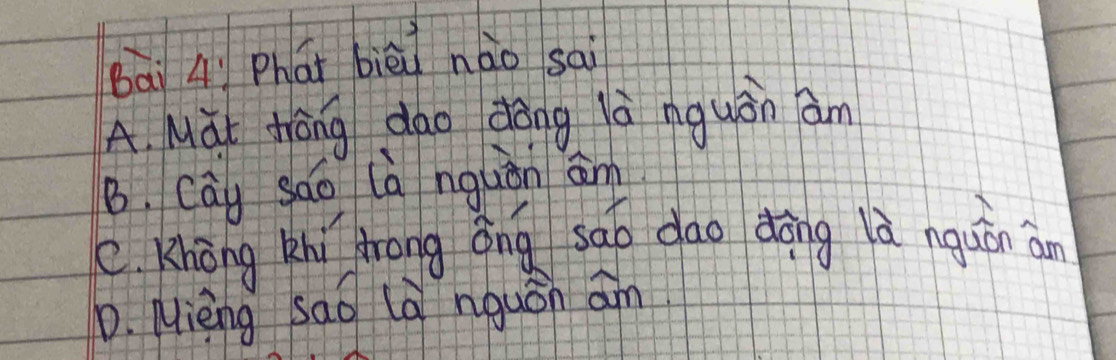 Bài 4: Phát biểu nào sai
A. Mặt trống dao động là nguồn âm
B. Cây sáo là nguồn âm.
C. Không khí trong ống sáo dao động là nguồn âm.
D. Miệng sáo là nguồn âm.